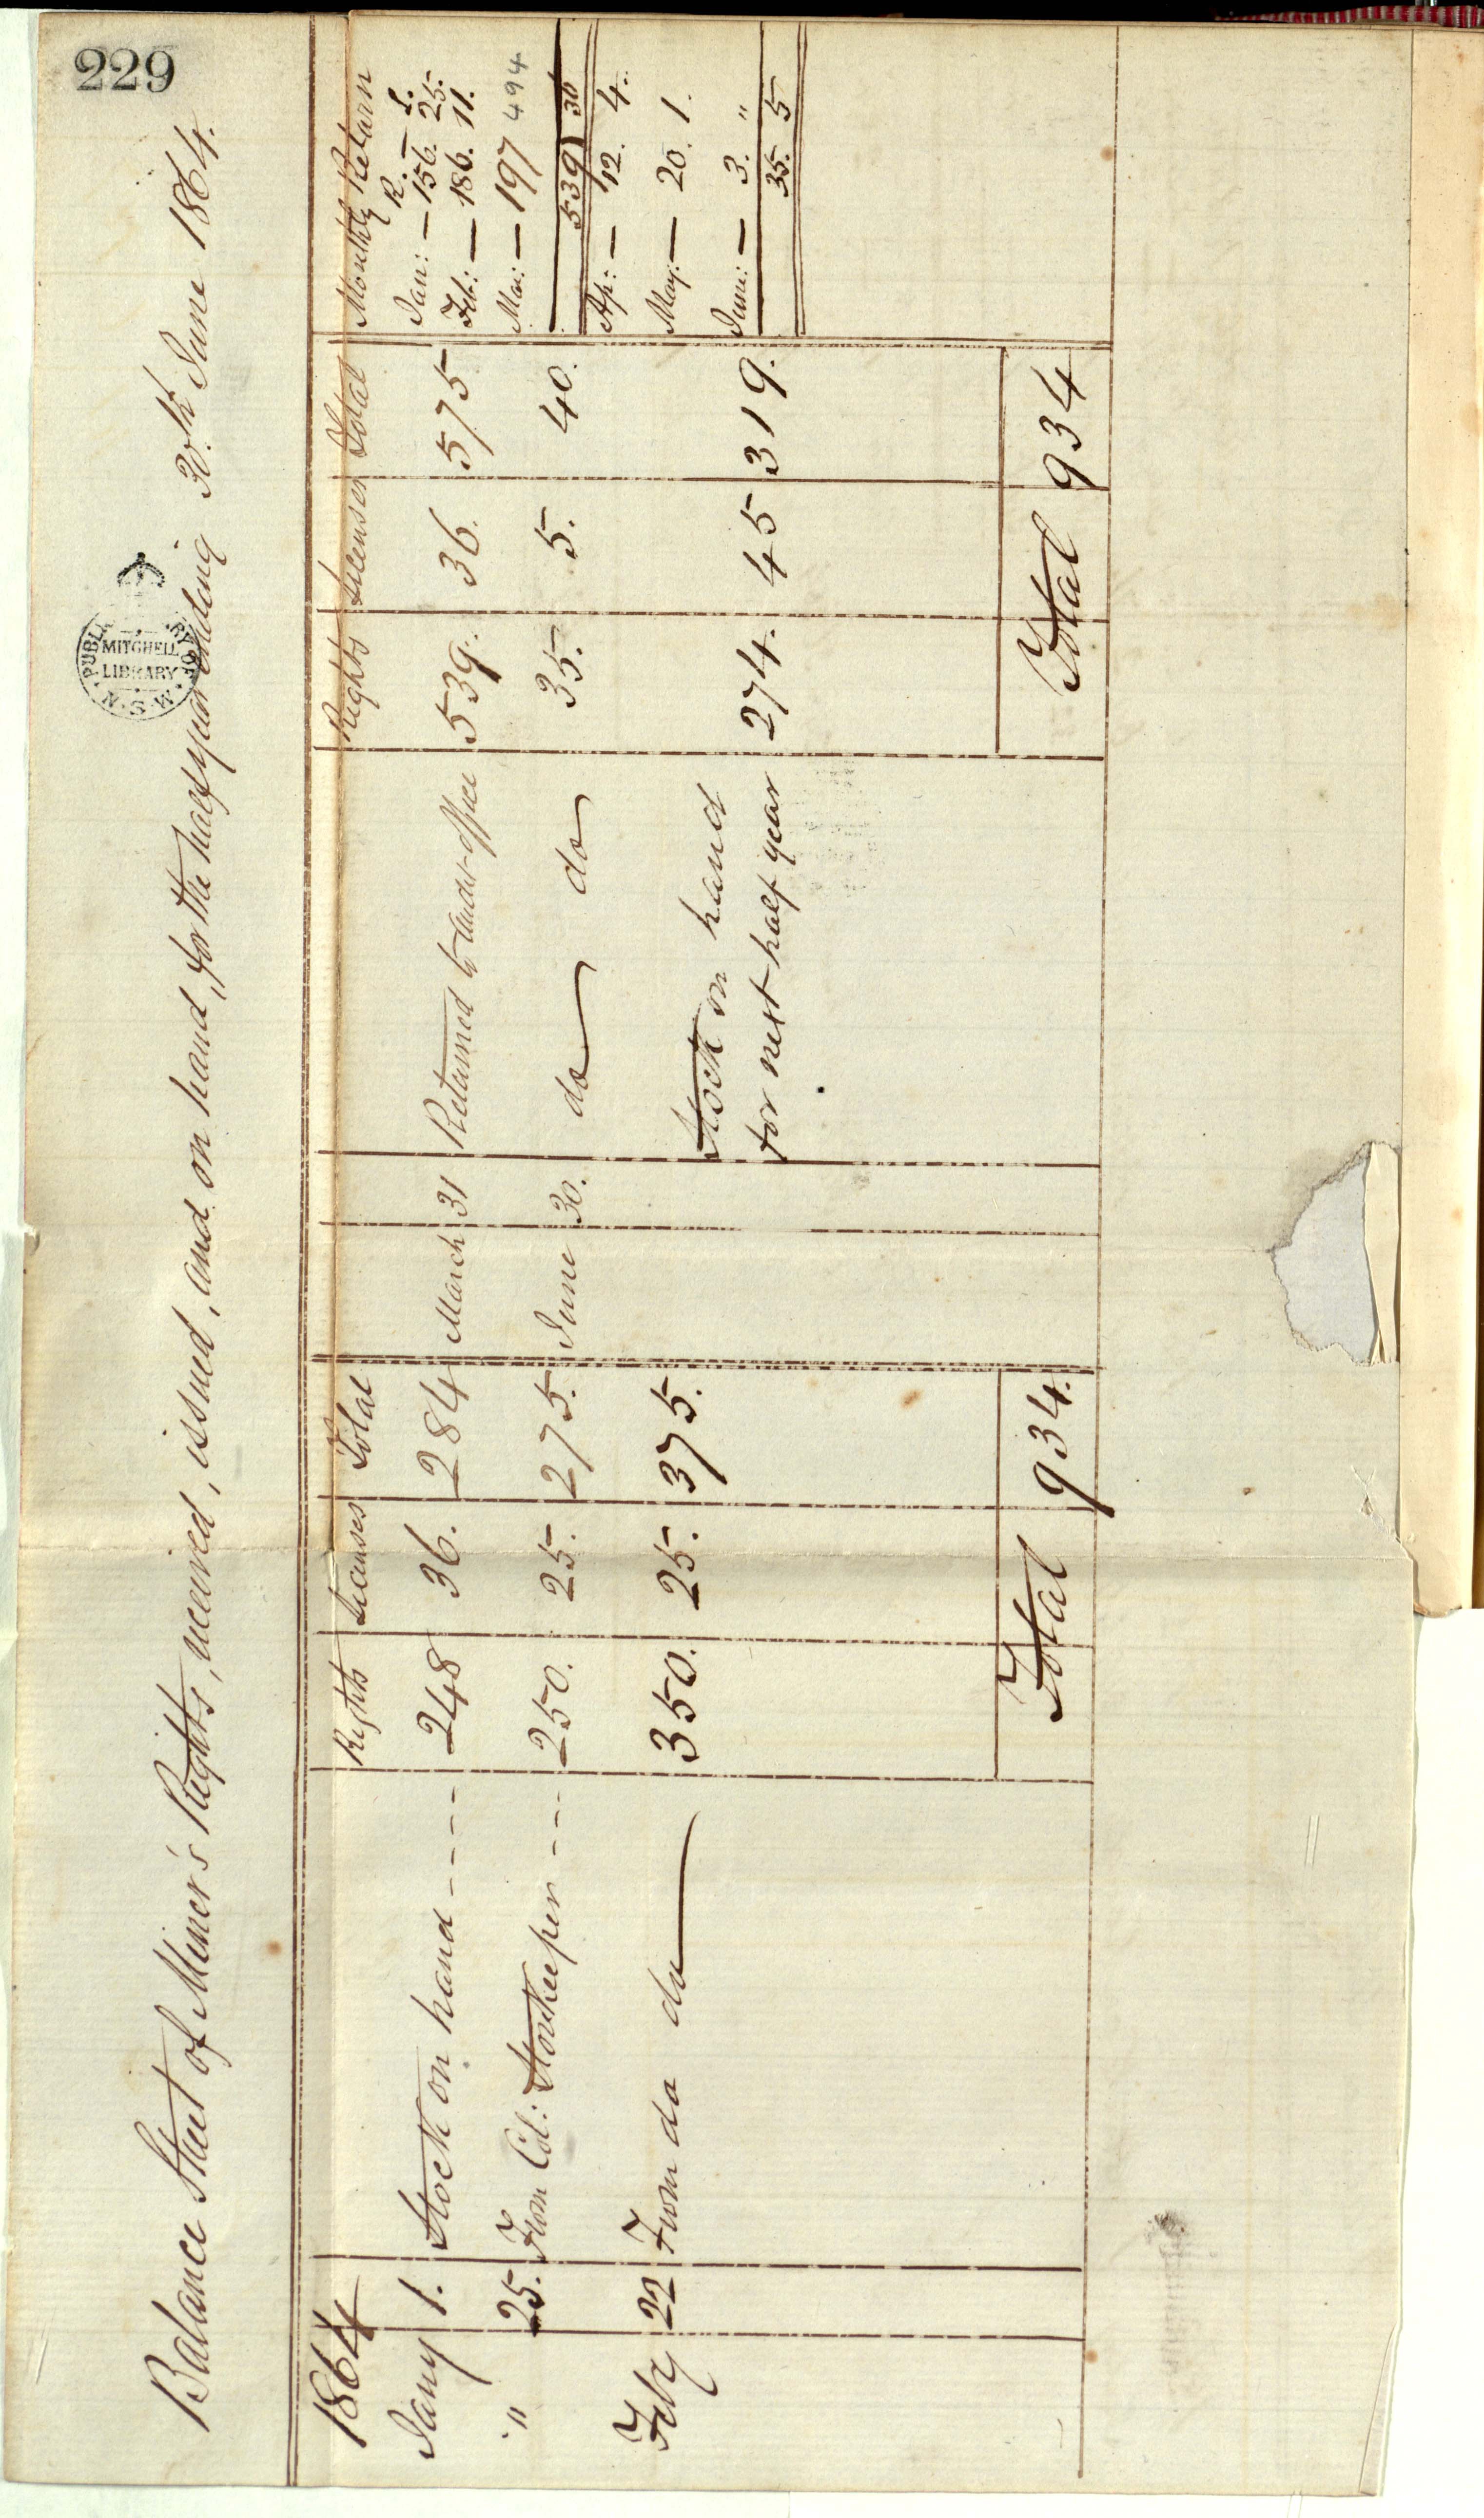 229
Balance Sheet of Miner's Rights, received, issued, and on hand, for the half year ending 30th June 1864.
PUBLIC
MITCHELL
LIBRARY
N.S.W.
1864 Rights Licenses Total Rights Licenses Total Monthly Return
R. L.
Jany 1. Stock on hand ---- 248 36. 284 March 31 Returned to Audit office 539. 36. 575 Jan: — 156. 25.
Feb: — 186. 11.
" 25. From Col: Storekeeper --- 250. 25. 275. June 30. do do 35. 5. 40. Mar: — 197 494
539) 36
Ap: — 12. 4.
Feby 22 From do do 350. 25. 375. Stock on hand May: — 20. 1.
for next half year 274. 45 319. June: — 3. "
35. 5
Total 934. Total 934